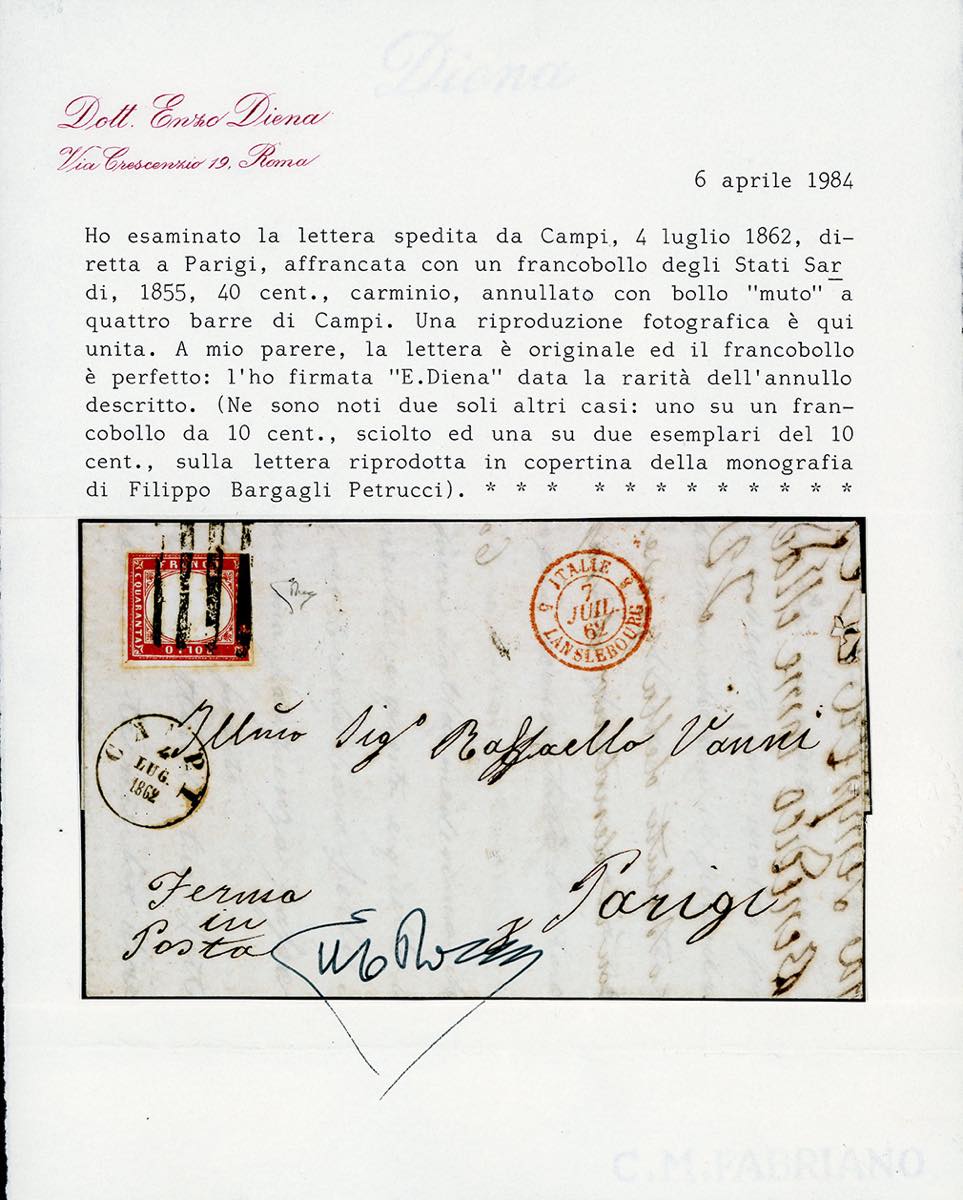 Diena
Dott. Enzo Diena
Via Crescenzio 19, Roma
6 aprile 1984
Ho esaminato la lettera spedita da Campi, 4 luglio 1862, di-
retta a Parigi, affrancata con un francobollo degli Stati Sar
di, 1855, 40 cent., carminio, annullato con bollo "muto" a
quattro barre di Campi. Una riproduzione fotografica è qui
unita. A mio parere, la lettera è originale ed il francobollo
è perfetto: l'ho firmata "E.Diena" data la rarità dell'annullo
descritto. (Ne sono noti due soli altri casi: uno su un fran-
cobollo da 10 cent., sciolto ed una su due esemplari del 10
cent., sulla lettera riprodotta in copertina della monografia
di Filippo Bargagli Petrucci). * * * * * * * * * * * * *
FRANCO
QUARANTA
ITALIE
7
JUIL.
62
LANSLEBOURG
Illmo Sigo Raffaello Vanni
CAMPI
4
LUG.
1862
Parigi
Ferma
in
Posta
C.M.FABRIANO